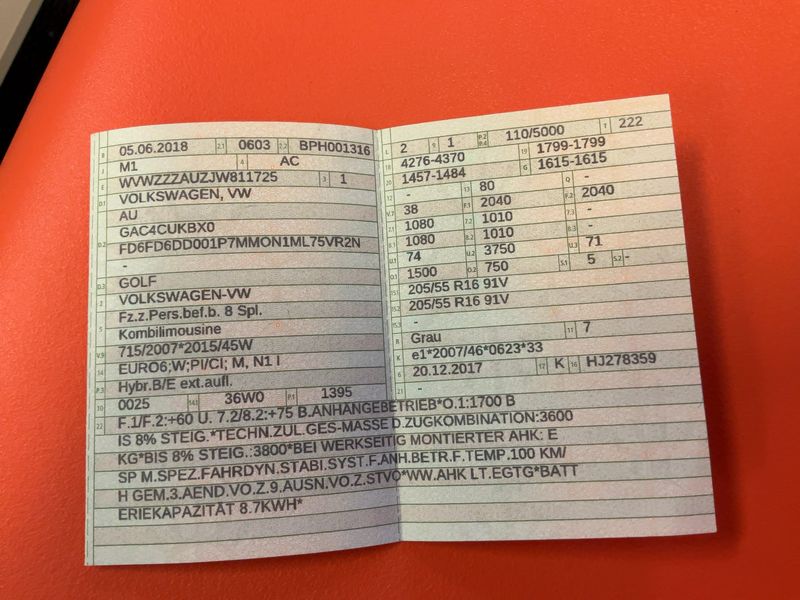 B 05.06.2018 2.1 0603 2.2 BPH001316
J M1 4 AC
E WVWZZZAUZJW811725 3 1
D.1 VOLKSWAGEN, VW
AU
D.2 GAC4CUKBX0
FD6FD6DD001P7MMON1ML75VR2N
-
D.3 GOLF
2 VOLKSWAGEN-VW
5 Fz.z.Pers.bef.b. 8 Spl.
Kombilimousine
V.9 715/2007*2015/45W
14 EURO6;W;PI/CI; M, N1 I
P.3 Hybr.B/E ext.aufl.
10 0025 14.1 36W0 P.1 1395
L 2 9 1 P.2 P.4 110/5000 T 222
18 4276-4370 19 1799-1799
20 1457-1484 G 1615-1615
12 - 13 80 Q -
V.7 38 F.1 2040 F.2 2040
7.1 1080 7.2 1010 7.3 -
8.1 1080 8.2 1010 8.3 -
U.1 74 U.2 3750 U.3 71
O.1 1500 O.2 750 S.1 5 S.2 -
15.1 205/55 R16 91V
15.2 205/55 R16 91V
15.3 -
R Grau 11 7
K e1*2007/46*0623*33
6 20.12.2017 17 K 16 HJ278359
21 -
22 F.1/F.2:+60 U. 7.2/8.2:+75 B.ANHANGEBETRIEB*O.1:1700 B
IS 8% STEIG.*TECHN.ZUL.GES-MASSE D.ZUGKOMBINATION:3600
KG*BIS 8% STEIG.:3800*BEI WERKSEITIG MONTIERTER AHK: E
SP M.SPEZ.FAHRDYN.STABI.SYST.F.ANH.BETR.F.TEMP.100 KM/
H GEM.3.AEND.VO.Z.9.AUSN.VO.Z.STVO*WW.AHK LT.EGTG*BATT
ERIEKAPAZITÄT 8.7KWH*